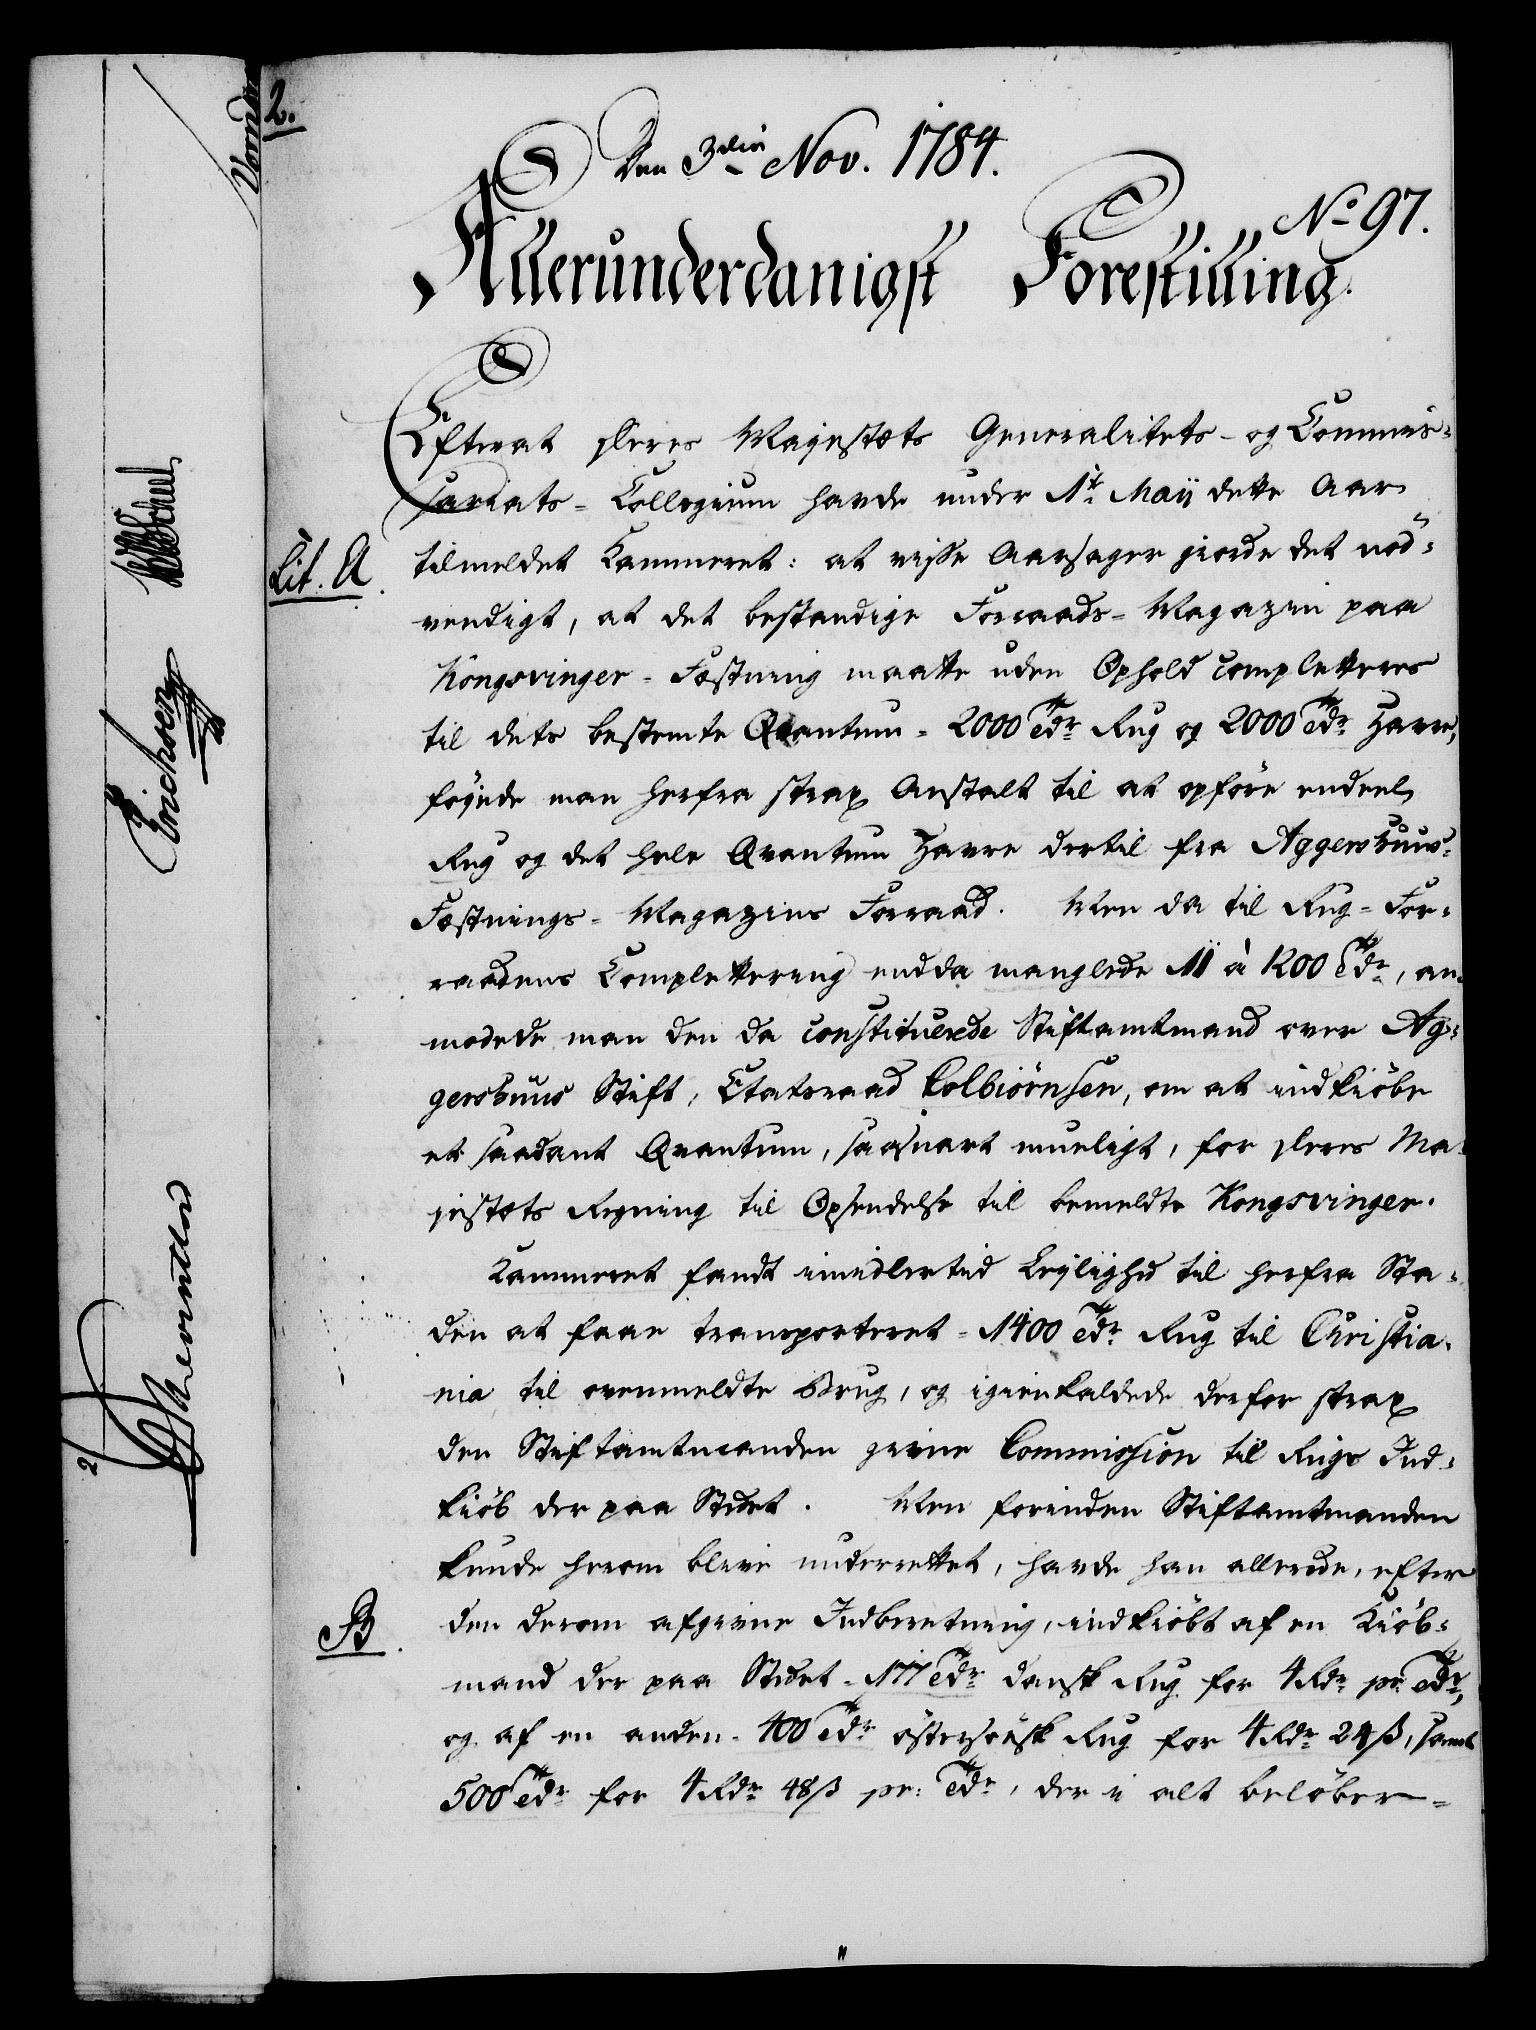 2.
Den 3die Nov. 1784.
No 97.
Allerunderdanigst Forestilling.
Efterat Deres Majestæts Generalitets- og Commis-
sariats-Collegium havde under 1te Maji dette Aar
Lit. A.
tilmeldet Kammeret: at visse Aarsager giorde det nöd-
vendigt, at det bestandige Forraads-Magazin paa
Kongsvinger-Fæstning maatte uden Ophold completteres
til dets bestemte Qvantum - 2000 Tdr Rug og 2000 Tdr Havre,
föyede man herfra strax Anstalt til at opföre endeel
Rug og det hele Qvantum Havre dertil fra Aggershuus-
Fæstnings-Magazins Forraad. Men da til Rug-For-
raadens Complettering endda manglede 11 à 1200 Tdr, an-
modede man den da constituerede Stiftamtmand over Ag-
gershuus Stift, Etatsraad Colbiörnsen, om at indkiöbe
et saadant Qvantum, saasnart mueligt, for Deres Ma-
jestæts Regning til Opsendelse til bemeldte Kongsvinger.
Kammeret fandt imidlertid Leylighed til herfra Sta-
den at faae transporteret - 1400 Tdr Rug til Christia-
nia til ovenmeldte Brug, og igienkaldede derfor strax
den Stiftamtmanden givne Commission til Rugs Ind-
kiöb der paa Stedet. Men forinden Stiftamtmanden
kunde herom blive underrettet, havde han allerede, efter
B.
den derom afgivne Indberetning, indkiöbt af en Kiöb-
mand der paa Stedet - 177 Tdr dansk Rug for 4 Rdr pr Tdr,
og af en anden - 400 Tdr östersöisk Rug for 4 Rdr 24 ß, samt
500 Tdr for 4 Rdr 48 ß pr: Tdr, der i alt belöber -
Erichsen
2